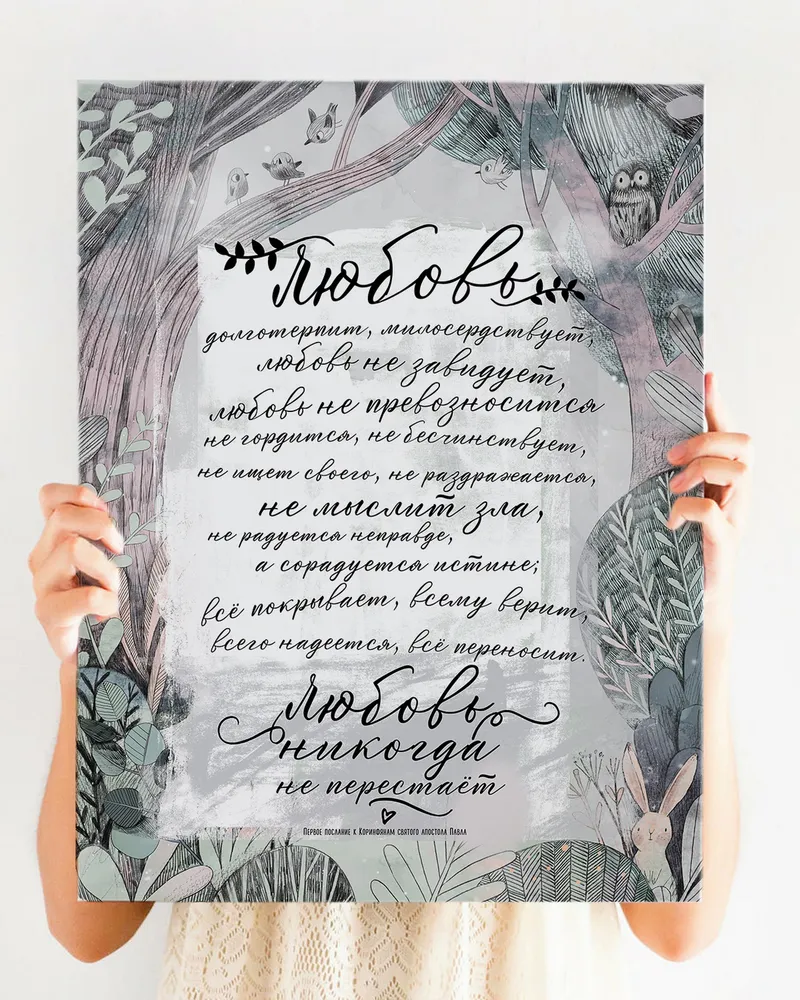 Любовь
долготерпит, милосердствует,
любовь не завидует,
любовь не превозносится
не гордится, не бесчинствует,
не ищет своего, не раздражается,
не мыслит зла,
не радуется неправде,
а сорадуется истине;
всё покрывает, всему верит,
всего надеется, всё переносит.
Любовь
никогда
не перестаёт
Первое послание к Коринфянам святого апостола Павла